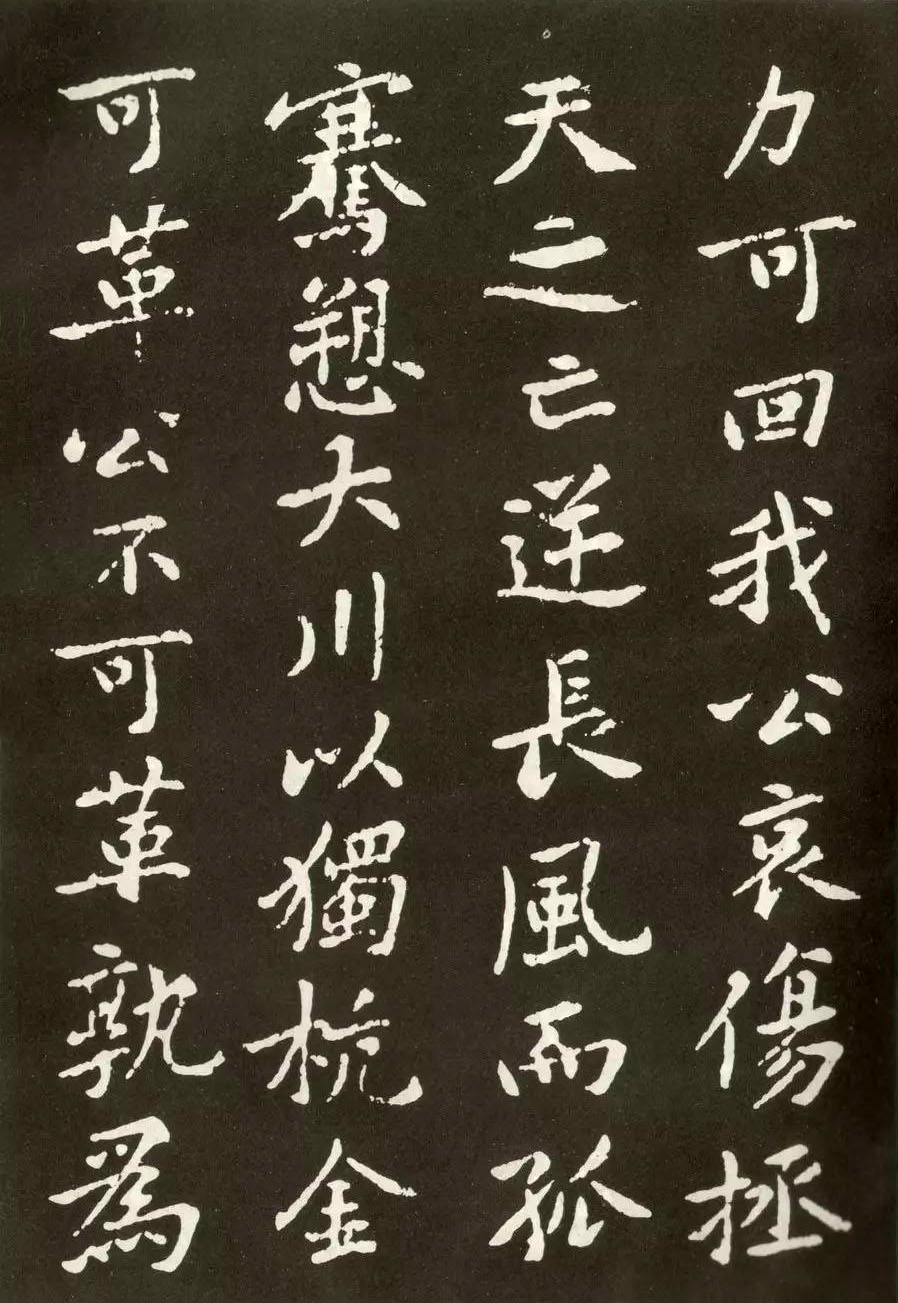 力可回我公哀傷拯
天之亡逆長風而孤
騫愬大川以獨杭金
可革公不可革孰爲